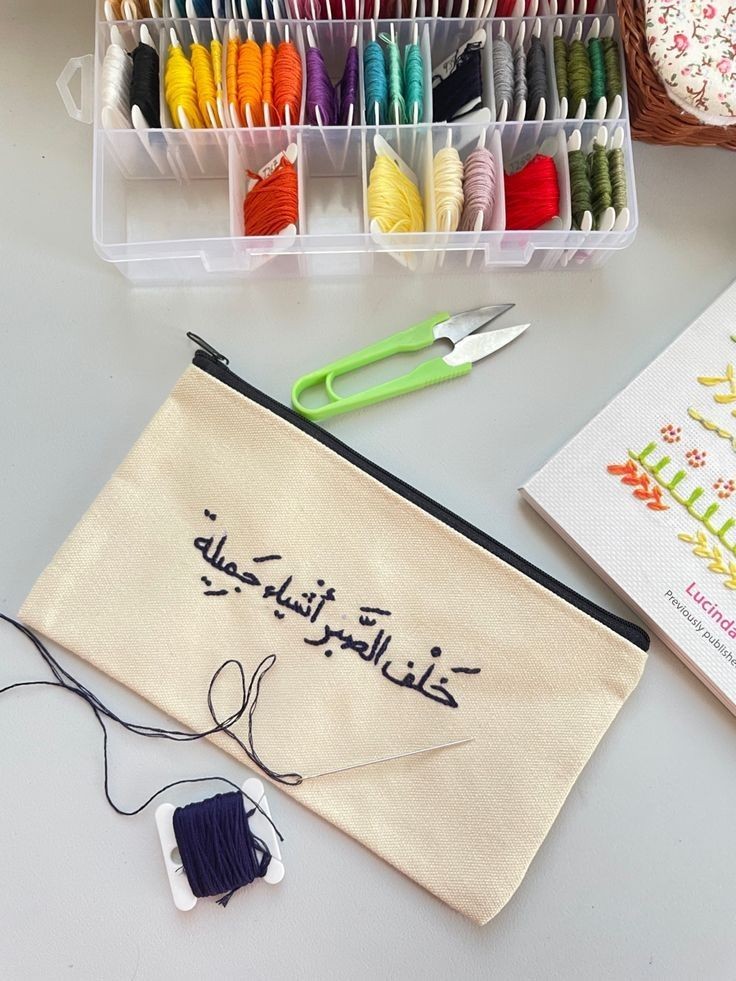 خَلْف الصَّبر أشْياء جَميلة
Lucinda
Previously publishe